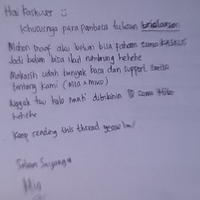 Hai Kaskuser :)
Khususnya para pembaca tulisan
Mohon maaf aku belum bisa paham sama KASKUS
Jadi belum bisa ikut nimbrung hehehe
Makasih udah banyak baca dan support cerita
tentang kami (Mia & Miko)
Nggak tau kalo nanti dibikinin
hehehe
Keep reading this thread yesss
Salam Sayang
Mia